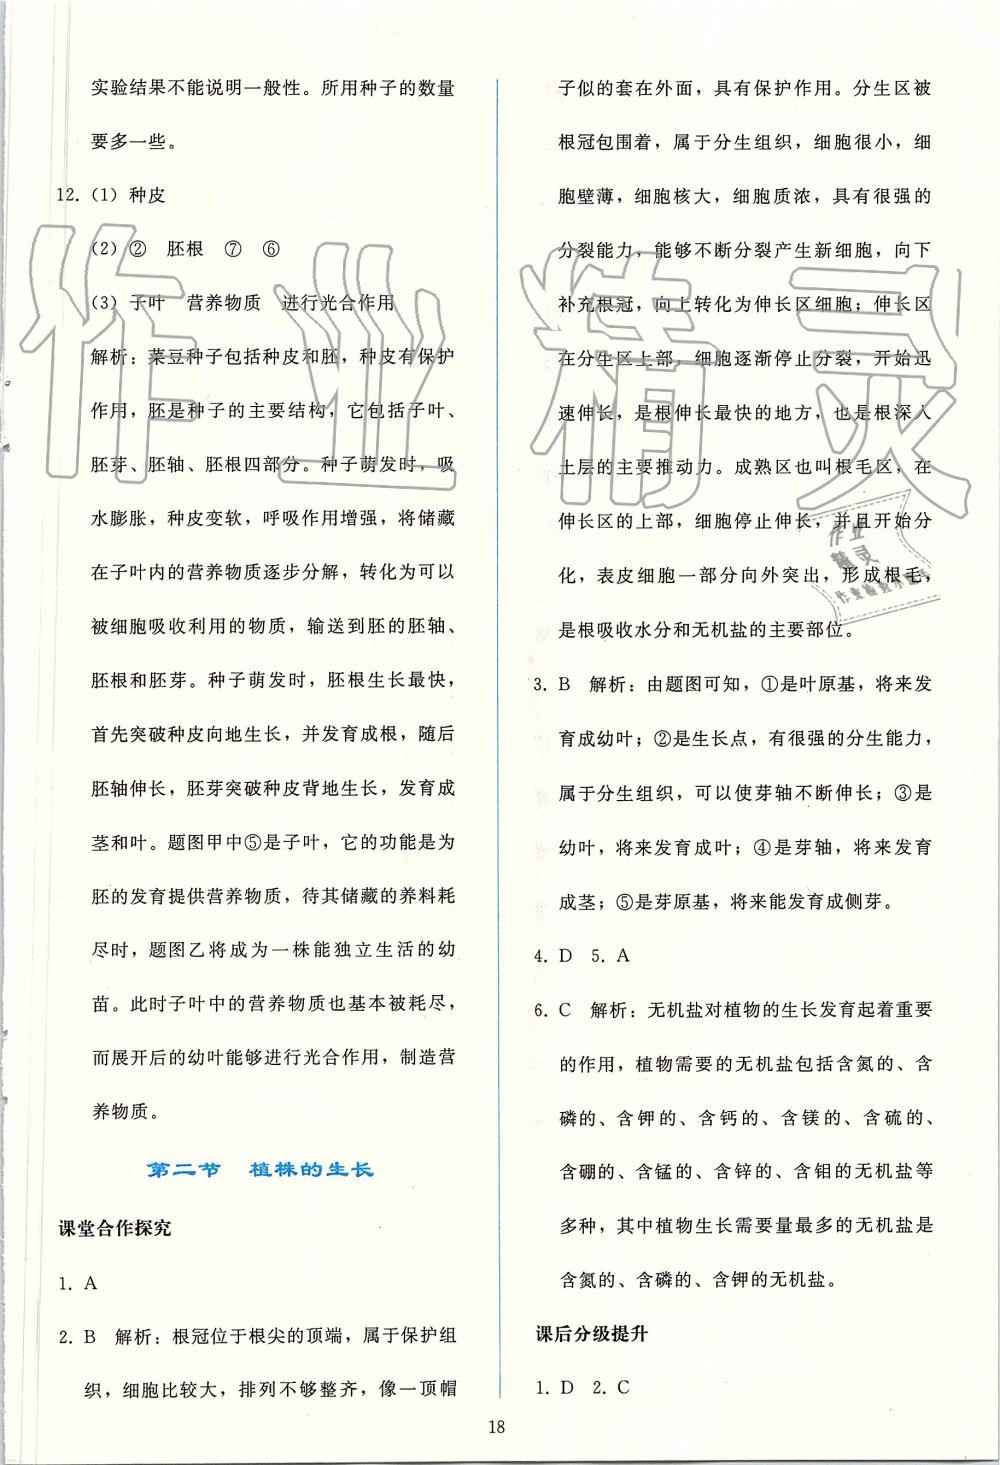 实验结果不能说明一般性。所用种子的数量
要多一些。
12.（1）种皮
（2）② 胚根 ⑦ ⑥
（3）子叶 营养物质 进行光合作用
解析：菜豆种子包括种皮和胚，种皮有保护
作用，胚是种子的主要结构，它包括子叶、
胚芽、胚轴、胚根四部分。种子萌发时，吸
水膨胀，种皮变软，呼吸作用增强，将储藏
在子叶内的营养物质逐步分解，转化为可以
被细胞吸收利用的物质，输送到胚的胚轴、
胚根和胚芽。种子萌发时，胚根生长最快，
首先突破种皮向地生长，并发育成根，随后
胚轴伸长，胚芽突破种皮背地生长，发育成
茎和叶。题图甲中⑤是子叶，它的功能是为
胚的发育提供营养物质，待其储藏的养料耗
尽时，题图乙将成为一株能独立生活的幼
苗。此时子叶中的营养物质也基本被耗尽，
而展开后的幼叶能够进行光合作用，制造营
养物质。
第二节 植株的生长
课堂合作探究
1. A
2. B 解析：根冠位于根尖的顶端，属于保护组
织，细胞比较大，排列不够整齐，像一顶帽
子似的套在外面，具有保护作用。分生区被
根冠包围着，属于分生组织，细胞很小，细
胞壁薄，细胞核大，细胞质浓，具有很强的
分裂能力，能够不断分裂产生新细胞，向下
补充根冠，向上转化为伸长区细胞；伸长区
在分生区上部，细胞逐渐停止分裂，开始迅
速伸长，是根伸长最快的地方，也是根深入
土层的主要推动力。成熟区也叫根毛区，在
伸长区的上部，细胞停止伸长，并且开始分
化，表皮细胞一部分向外突出，形成根毛，
是根吸收水分和无机盐的主要部位。
3. B 解析：由题图可知，①是叶原基，将来发
育成幼叶；②是生长点，有很强的分生能力，
属于分生组织，可以使芽轴不断伸长；③是
幼叶，将来发育成叶；④是芽轴，将来发育
成茎；⑤是芽原基，将来能发育成侧芽。
4. D 5. A
6. C 解析：无机盐对植物的生长发育起着重要
的作用，植物需要的无机盐包括含氮的、含
磷的、含钾的、含钙的、含镁的、含硫的、
含硼的、含锰的、含锌的、含钼的无机盐等
多种，其中植物生长需要量最多的无机盐是
含氮的、含磷的、含钾的无机盐。
课后分级提升
1. D 2. C
18
作业精灵
作业
精灵